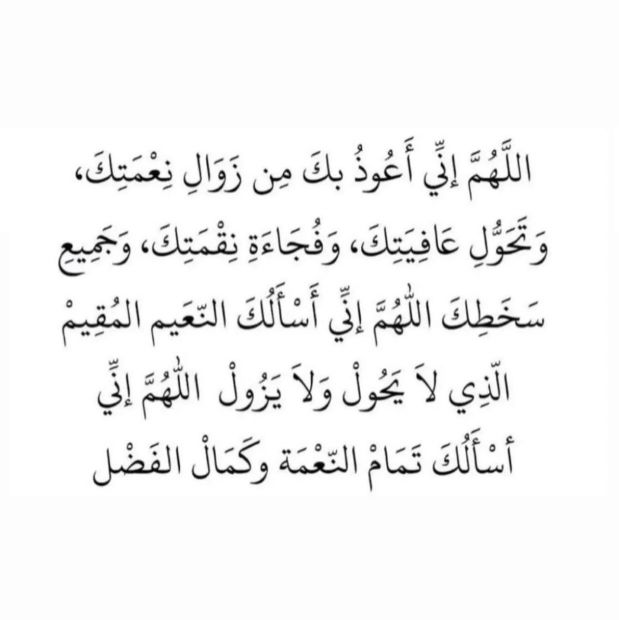 اللَّهُمَّ إنِّي أَعُوذُ بكَ مِن زَوَالِ نِعْمَتِكَ،
وَتَحَوُّلِ عَافِيَتِكَ، وَفُجَاءَةِ نِقْمَتِكَ، وَجَمِيعِ
سَخَطِكَ اللهُمَّ إنِّي أَسْأَلُكَ النّعَيم المُقِيمْ
الّذِي لاَ يَحُولْ وَلاَ يَزُولْ اللهُمَّ إنِّي
أسْأَلُكَ تَمَامْ النّعْمَة وكَمَالْ الفَضْل